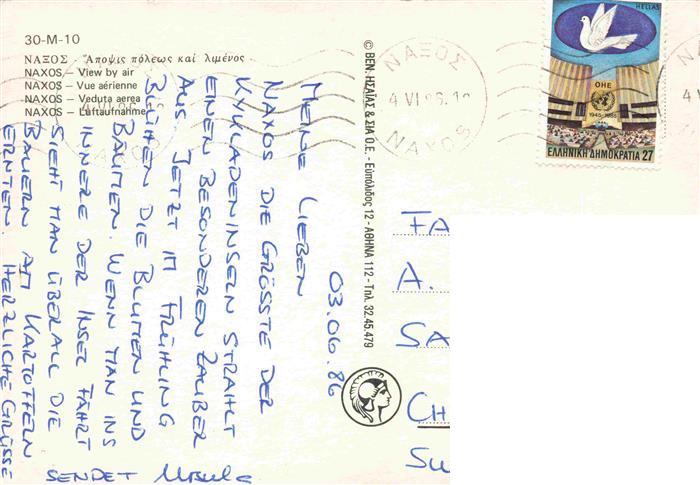 30-M-10
ΝΑΞΟΣ Ἄποψις πόλεως καί λιμένος
NAXOS – View by air
NAXOS – Vue aérienne
NAXOS – Veduta aerea
NAXOS – Luftaufnahme
© ΒΕΝ. ΗΣΑΪΑΣ & ΣΙΑ Ο.Ε. - Εὐπόλιδος 12 - ΑΘΗΝΑ 112 - Τηλ. 32.45.479
ΝΑΞΟΣ
4 VI 86
NAXOS
HELLAS
ΟΗΕ
1945-1985
ΕΛΛΗΝΙΚΗ ΔΗΜΟΚΡΑΤΙΑ 27
03.06.86
MEINE LIEBEN
NAXOS DIE GRÖSSTE DER
KYKLADENINSELN STRAHLT
EINEN BESONDEREN ZAUBER
AUS. JETZT IM FRÜHLING
BLÜHEN DIE BLUMEN UND
BÄUMEN. WENN MAN INS
INNERE DER INSEL FÄHRT
SIEHT MAN ÜBERALL DIE
BAUERN AM KARTOFFELN
ERNTEN. HERZLICHE GRÜSSE
SENDET Ursula
FA
A.
SA
CH
SU